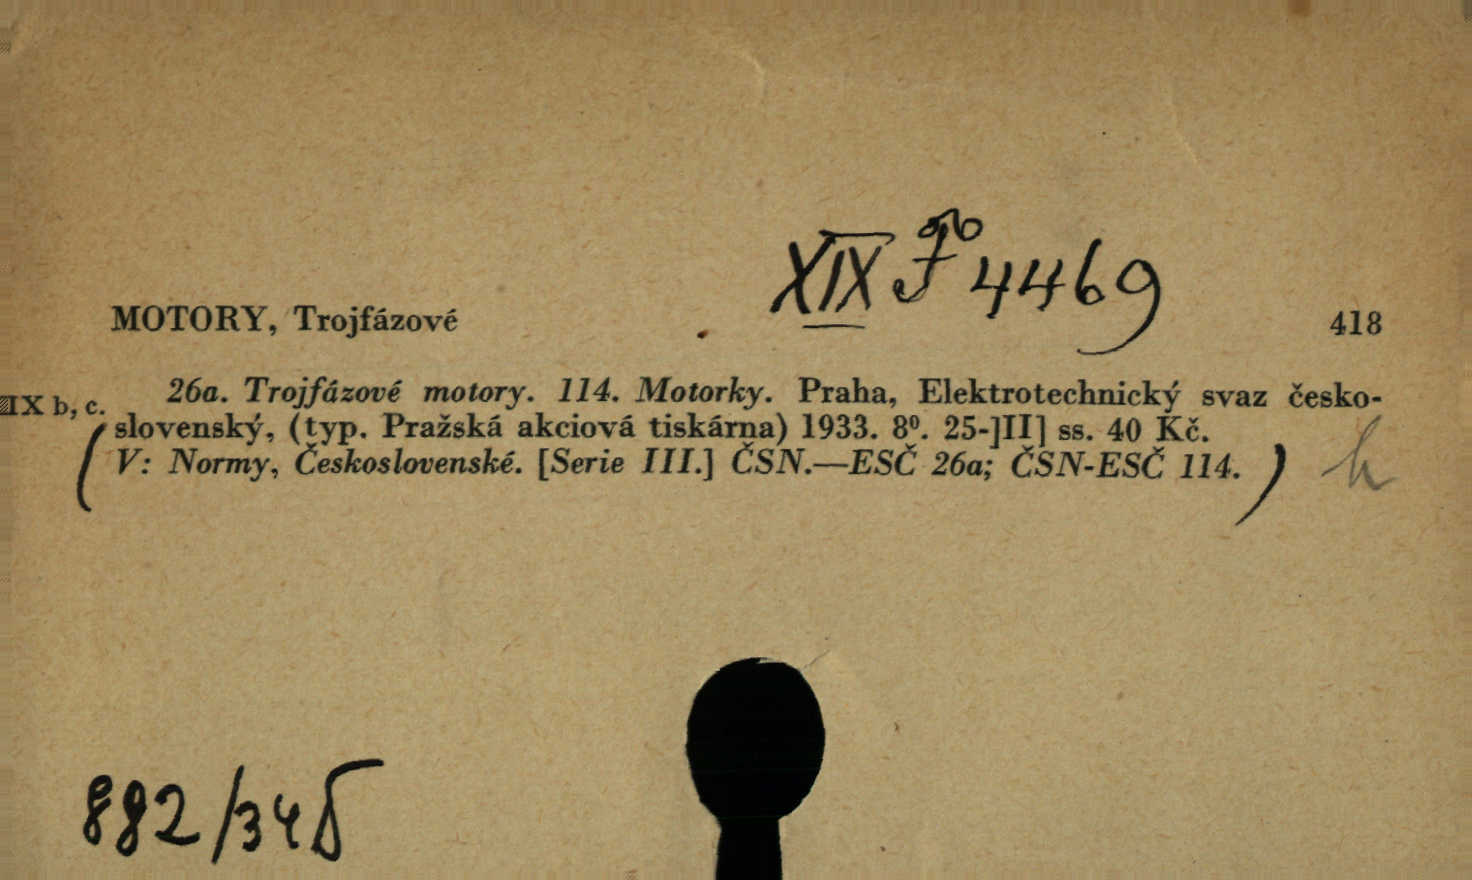 XIX F 4469
MOTORY, Trojfázové 418
26a. Trojfázové motory. 114. Motorky. Praha, Elektrotechnický svaz česko-
IX b, c.
slovenský, (typ. Pražská akciová tiskárna) 1933. 8⁰. 25-]II] ss. 40 Kč.
(V: Normy, Československé. [Serie III.] ČSN.—ESČ 26a; ČSN-ESČ 114.) h
882/34